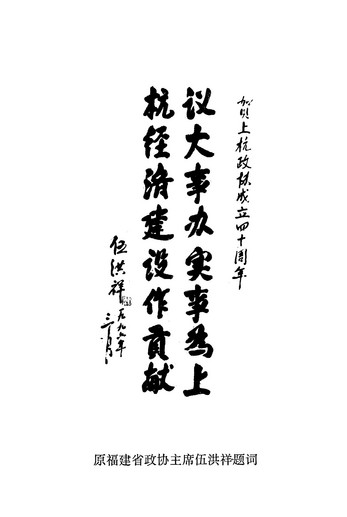 贺上杭政协成立四十周年
议大事办实事为上
杭经济建设作贡献
伍洪祥
一九九六年
三月
原福建省政协主席伍洪祥题词